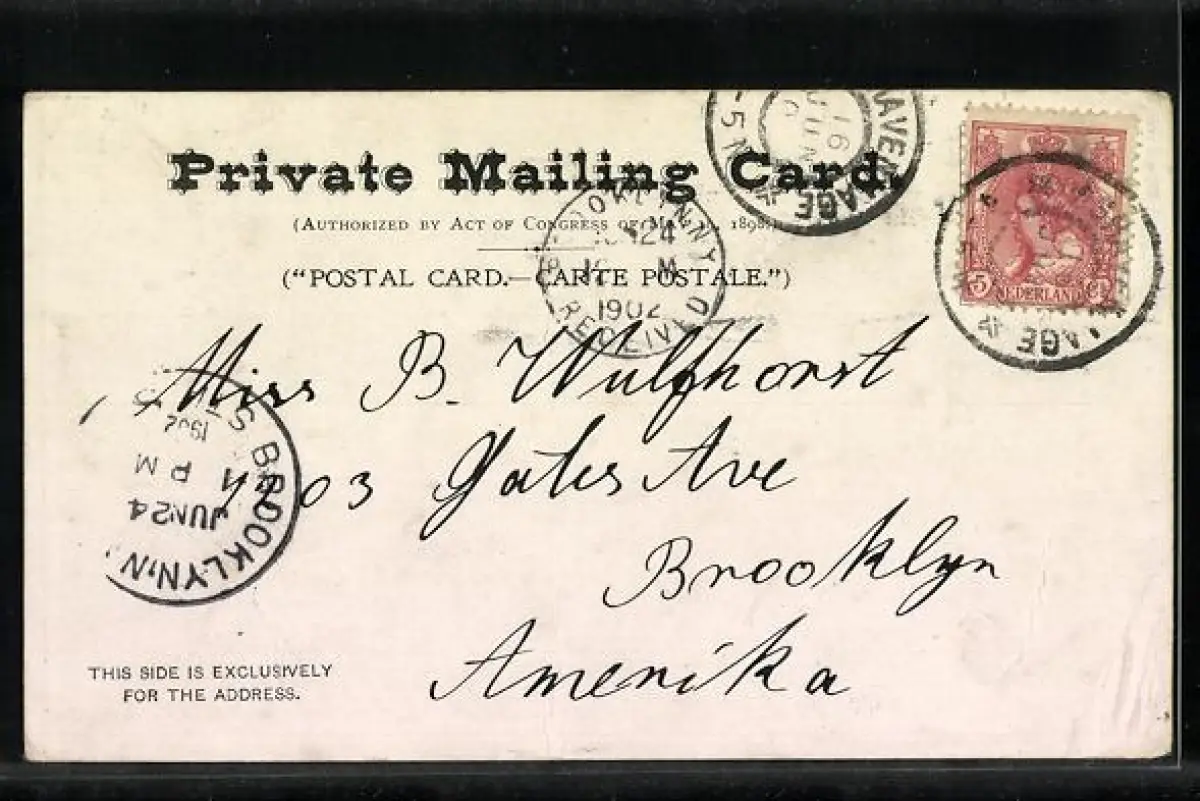 Private Mailing Card.
(AUTHORIZED BY ACT OF CONGRESS OF MAY 19, 1898.)
("POSTAL CARD.—CARTE POSTALE.")
HAVEN
HAGE
16 JUN
-5N
NEDERLAND
5
HAGE
BROOKLYN, N.Y.
JUN 24
M
1902
RECEIVED
Miss B. Wulfhorst
Gates Ave
Brooklyn
Amerika
BROOKLYN, N.
JUN 24
PM
1902
THIS SIDE IS EXCLUSIVELY
FOR THE ADDRESS.